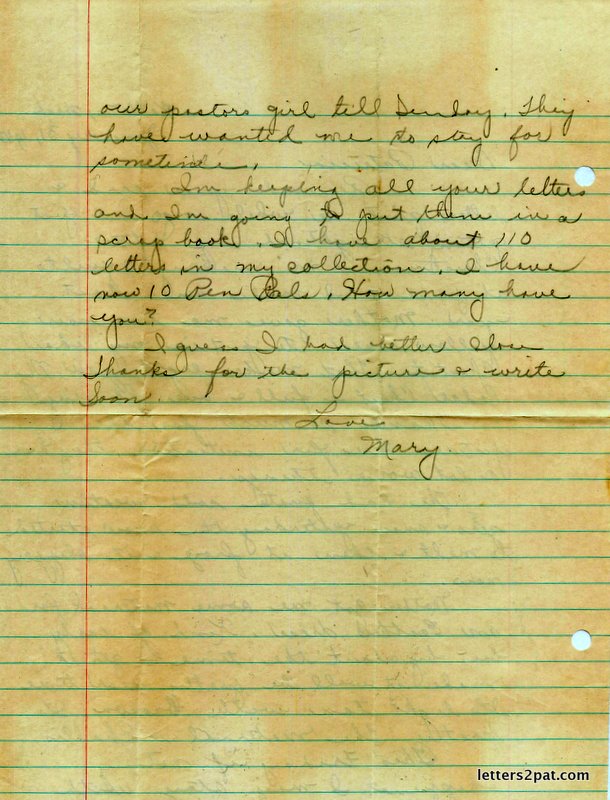 our pastors girl till Sunday. They
have wanted me to stay for
sometime.
Im keeping all your letters
and Im going to put them in a
scrap book. I have about 110
letters in my collection. I have
now 10 Pen Pals. How many have
you?
I guess I had better close
Thanks for the picture & write
Soon.
Love
Mary
letters2pat.com